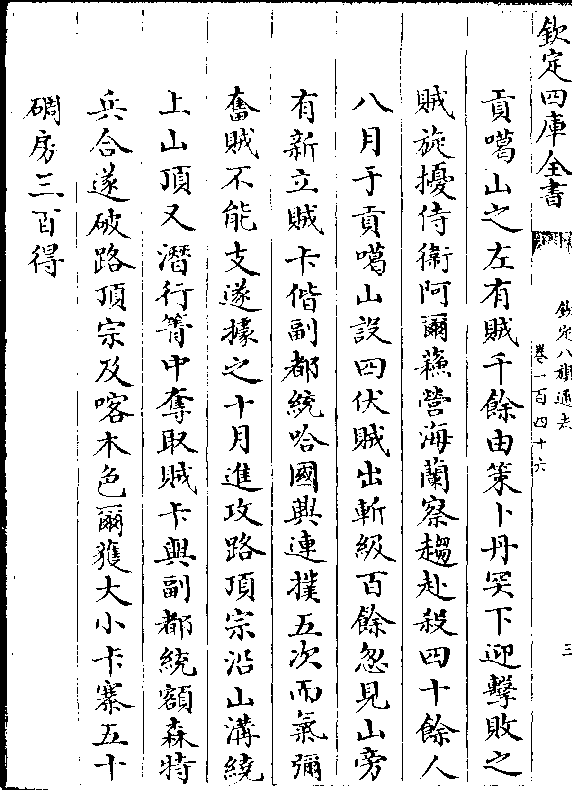 欽定四庫全書
欽定八旗通志
卷一百四十六
三
貢噶山之左有賊千餘由策卜丹罕下迎擊敗之
賊旋擾侍衛阿爾蘓營海蘭察趨赴殺四十餘人
八月于貢噶山設四伏賊出斬級百餘忽見山旁
有新立賊卡偕副都統哈國興連撲五次而氣彌
奮賊不能支遂據之十月進攻路頂宗沿山溝繞
上山頂又潛行箐中奪取賊卡與副都統額森特
兵合遂破路頂宗及喀木色爾獲大小卡寨五十
碉房三百得